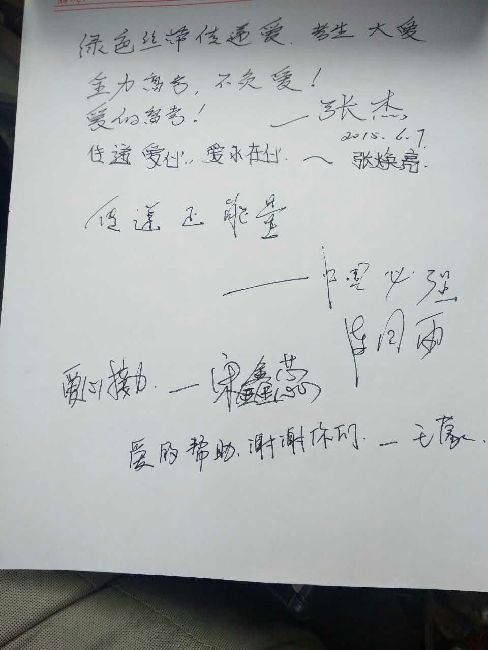 绿色丝带传递爱. 考生 大爱
全力高考, 不负爱!
爱的高考!
—张杰
2015.6.7
传递爱心, 爱永在心. ~ 张焕亮.
传递正能量
——中国必强
爱心接力. —宋鑫蕊
爱的帮助, 谢谢你们. —王蒙.